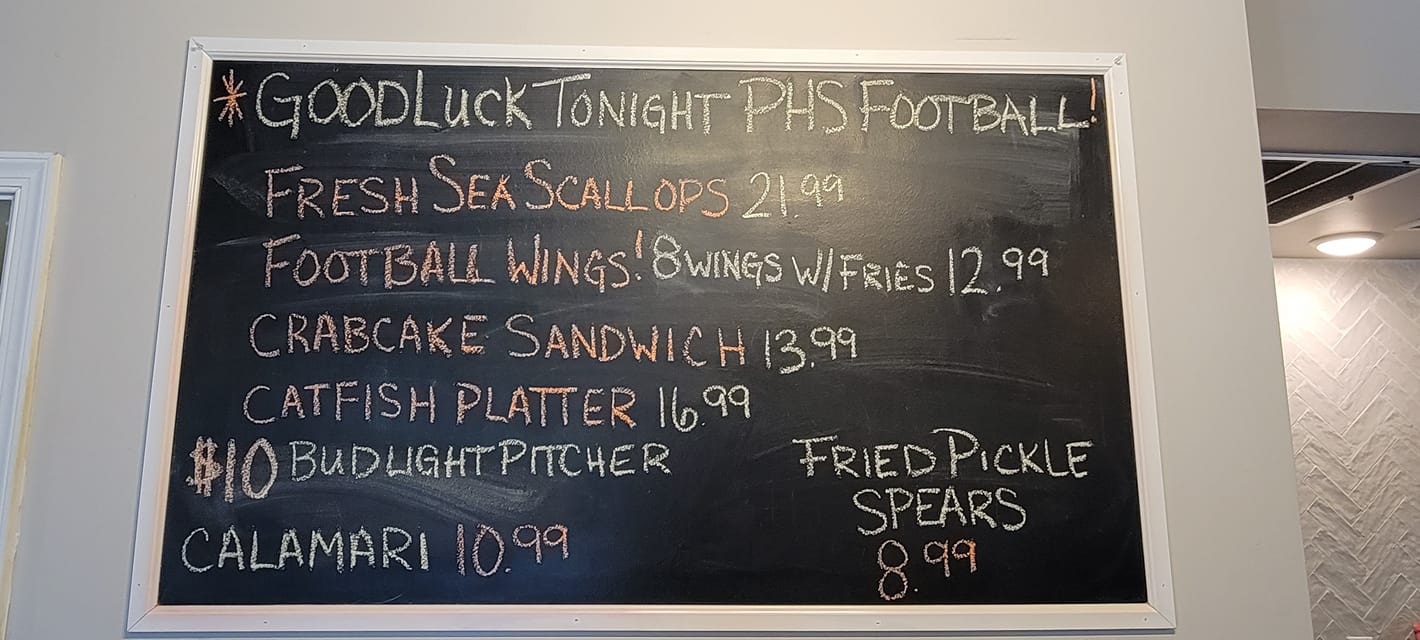 * GOODLUCK TONIGHT PHS FOOTBALL!
FRESH SEA SCALLOPS 21.99
FOOTBALL WINGS! 8 WINGS W/FRIES 12.99
CRABCAKE SANDWICH 13.99
CATFISH PLATTER 16.99
$10 BUDLIGHT PITCHER
CALAMARI 10.99
FRIED PICKLE
SPEARS
8.99